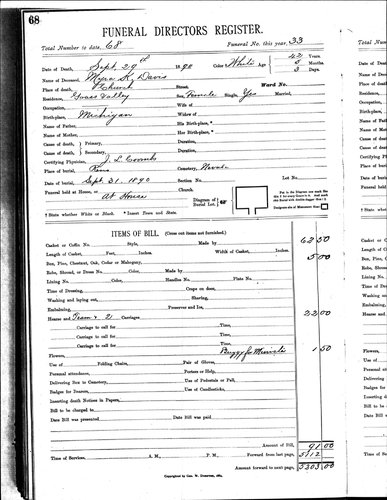 68
FUNERAL DIRECTORS REGISTER.
Total Number to date, 68 Funeral No. this year, 33
Date of Death, Sept. 29th 1890 Color † White Age 42 Years
5 Months
3 Days.
Name of Deceased, Myra K. Davis
Place of death, Street, Ward No.
Residence, Grass Valley Sex, Female Single, Yes Married,
Occupation, Wife of
Birth-place, Michigan Widow of
Name of Father, His Birth-place *
Name of Mother, Her Birth-place *
Cause of death, Primary, Duration,
Cause of death, Secondary, Duration,
Certifying Physician, J. L. Coombs
Place of burial, Cemetery, Nevada
Date of burial, Sept. 31. 1890 Section No. Lot No.
Funeral held at House, or Church
At House
Diagram of Burial Lot.
† State whether White or Black. * Insert Town and State.
ITEMS OF BILL. (Cross out items not furnished.)
Casket or Coffin No. Style, Made by 62 50
Length of Casket, Feet, Inches. Width of Casket, Inches. 5 00
Box, Pine, Chestnut, Oak, Cedar or Mahogany,
Robe, Shroud, or Dress No. Color, Made by
Lining No. Color, Handles No. Plate No.
Time of Dressing, Crape on door,
Washing and laying out, Shaving,
Embalming, Preserver and Ice,
Hearse and Team & 2 Carriages 22 00
Carriage to call for Time,
Carriage to call for Time,
Carriage to call for Time,
Flowers, Buggy for Minister 1 50
Use of Folding Chairs, Pair of Gloves,
Personal attendance, Porters or Help,
Delivering Box to Cemetery, Use of Pedestals or Pall,
Badges for Bearers, Use of Candlesticks,
Inserting death Notices in Papers,
Bill to be charged to
Date Bill was presented Date Bill was paid
Amount of Bill, 91 00
Time of Services A. M., P. M. Forward from last page, 5212
Amount forward to next page, 5303 00